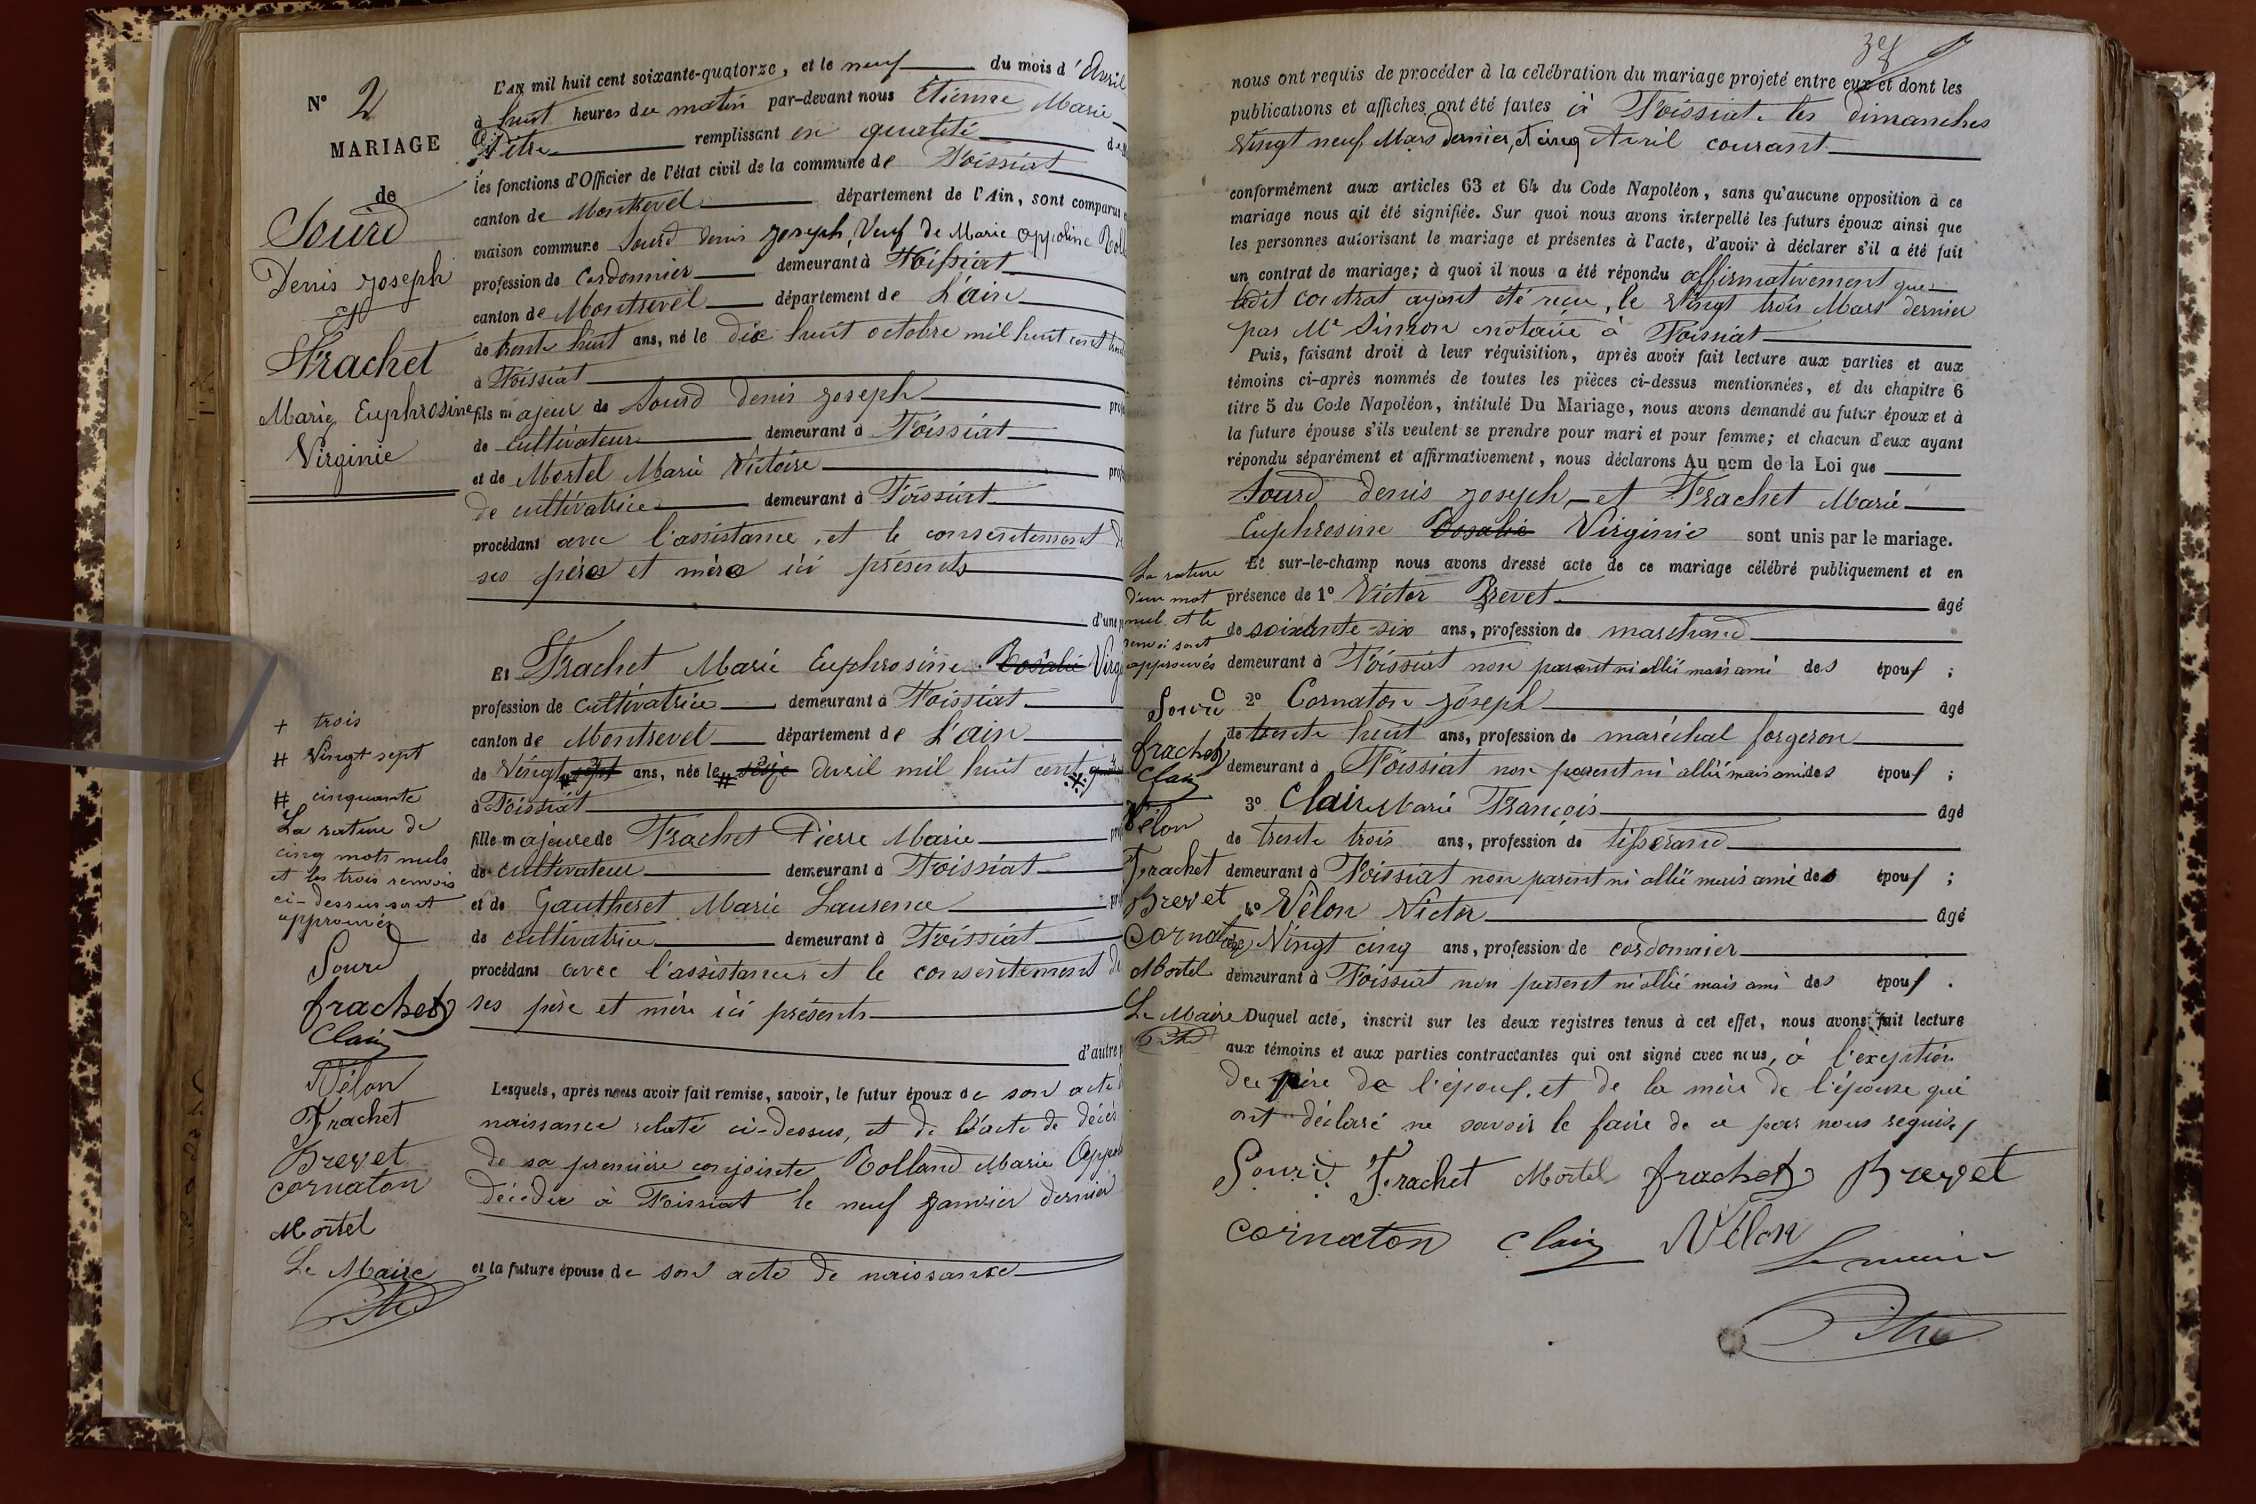 N° 2
MARIAGE
de
Sourd
Denis Joseph
et
Frachet
Marie Euphrosine
Virginie
+ trois
# Vingt sept
# cinquante
La rature de
cinq mots nuls
et les trois renvois
ci-dessus sont
approuvés
Sourd
frachet
Clair
Vélon
Frachet
Brevet
cornaton
Mortel
Le Maire
L'AN mil huit cent soixante-quatorze, et le neuf du mois d'Avril
à huit heures du matin par-devant nous Etienne Marie
Pitre remplissant en qualité de
les fonctions d'Officier de l'état civil de la commune de Foissiat
canton de Montrevel département de l'Ain, sont comparus
maison commune Sourd denis Joseph, Veuf de Marie Appoline
profession de Cordonnier demeurant à Foissiat
canton de Montrevel département de L'ain
de trente huit ans, né le dix huit octobre mil huit cent
à Foissiat
fils majeur de Sourd denis Joseph
de cultivateur demeurant à Foissiat
et de Mortel Marie Victoire
de cultivatrice demeurant à Foissiat
procédant avec l'assistance, et le consentement de
ses père et mère ici présents
d'une
Et Frachet Marie Euphrosine Rosalie
profession de cultivatrice demeurant à Foissiat
canton de Montrevel département de L'ain
de Vingt sept ans, née le seize Avril mil huit cent
à Foissiat
fille majeure de Frachet Pierre Marie
de cultivateur demeurant à Foissiat
et de Gautheret Marie Laurence
de cultivatrice demeurant à Foissiat
procédant avec l'assistance et le consentement de
ses père et mère ici présents
d'autre
Lesquels, après nous avoir fait remise, savoir, le futur époux de son acte
naissance relaté ci-dessus, et de l'acte de décès
de sa première conjointe Rolland Marie
décédée à Foissiat le neuf Janvier dernier
et la future épouse de son acte de naissance
nous ont requis de procéder à la célébration du mariage projeté entre eux et dont les
publications et affiches ont été faites à Foissiat les dimanches
Vingt neuf Mars dernier, et cinq Avril courant
conformément aux articles 63 et 64 du Code Napoléon, sans qu'aucune opposition à ce
mariage nous ait été signifiée. Sur quoi nous avons interpellé les futurs époux ainsi que
les personnes autorisant le mariage et présentes à l'acte, d'avoir à déclarer s'il a été fait
un contrat de mariage; à quoi il nous a été répondu affirmativement que
ledit contrat ayant été reçu, le Vingt trois Mars dernier
par Me Simon notaire à Foissiat
Puis, faisant droit à leur réquisition, après avoir fait lecture aux parties et aux
témoins ci-après nommés de toutes les pièces ci-dessus mentionnées, et du chapitre 6
titre 5 du Code Napoléon, intitulé Du Mariage, nous avons demandé au futur époux et à
la future épouse s'ils veulent se prendre pour mari et pour femme; et chacun d'eux ayant
répondu séparément et affirmativement, nous déclarons Au nom de la Loi que
Sourd denis Joseph, et Frachet Marie
Euphrosine Rosalie Virginie sont unis par le mariage.
Et sur-le-champ nous avons dressé acte de ce mariage célébré publiquement et en
présence de 1° Victor Brevet âgé
de soixante six ans, profession de marchand
demeurant à Foissiat non parent ni allié mais ami des époux ;
2° Cornaton Joseph âgé
de trente huit ans, profession de maréchal forgeron
demeurant à Foissiat non parent ni allié mais ami des époux ;
3° Clair Marie François âgé
de trente trois ans, profession de tisserand
demeurant à Foissiat non parent ni allié mais ami des époux ;
4° Vélon Victor âgé
de Vingt cinq ans, profession de cordonnier
demeurant à Foissiat non parent ni allié mais ami des époux .
Duquel acte, inscrit sur les deux registres tenus à cet effet, nous avons fait lecture
aux témoins et aux parties contractantes qui ont signé avec nous, à l'exeption
du père de l'époux, et de la mère de l'épouse qui
ont déclaré ne savoir le faire de ce par nous requis
La rature
d'un mot
nul et le
renvoi sont
approuvés
Sourd
frachet
Clair
Vélon
Frachet
Brevet
Cornaton
Mortel
Le Maire
Sourd Frachet Mortel frachet Brevet
cornaton Clair Vélon Le maire
Pitre